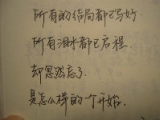 所有的结局都已写好
所有泪水都已启程
却忽然忘了
是怎么样的一个开始